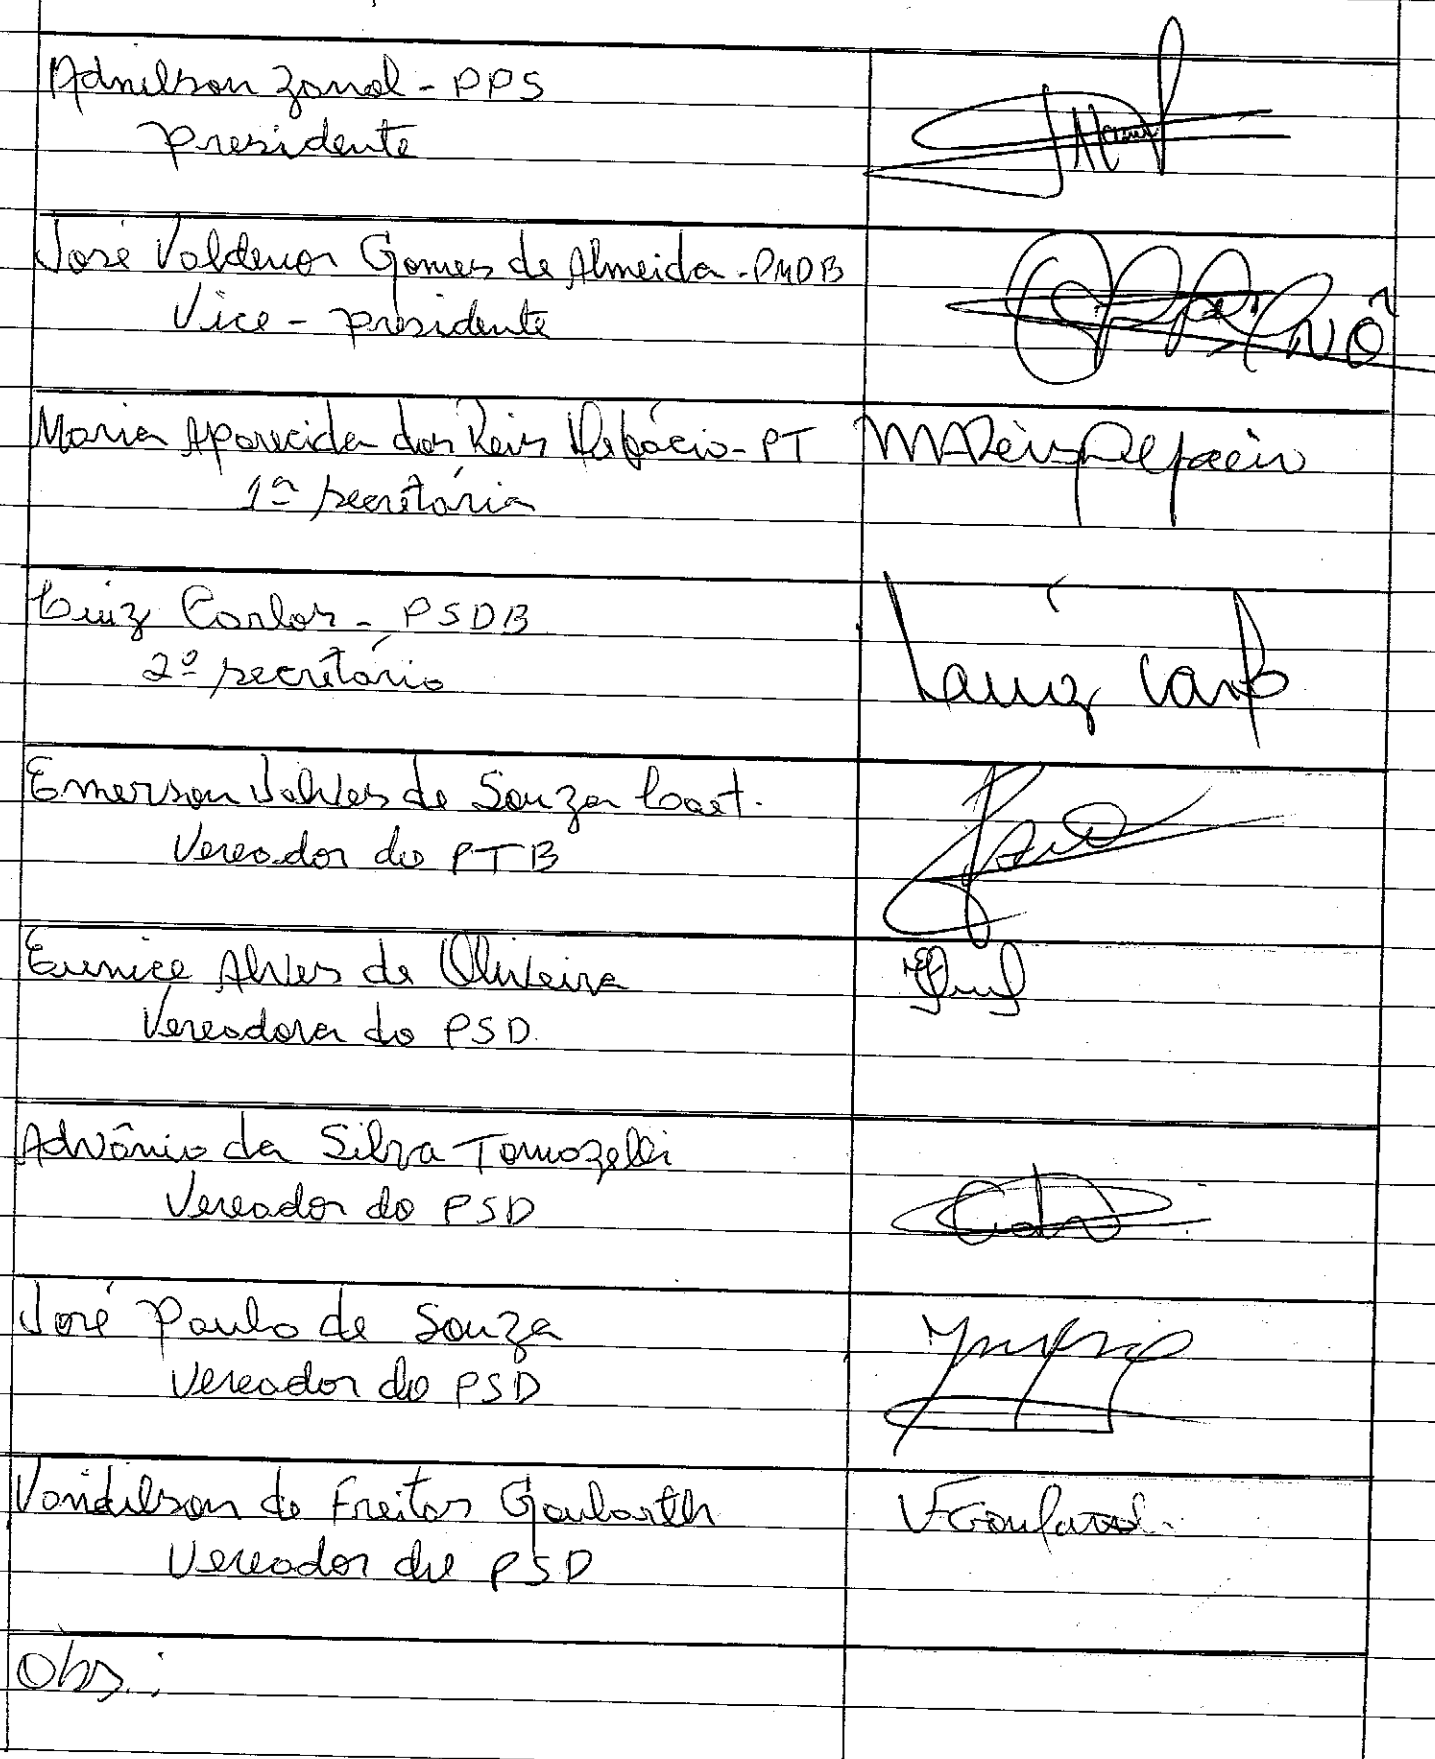 Adnilson Zanol - PPS
Presidente
José Valdenor Gomes de Almeida - PMDB
Vice - presidente
Maria Aparecida dos Reis Delpácio - PT MAReis Delpácio
1ª secretária
Luiz Carlos - PSDB
2º secretário
Luiz Carlos
Emerson de Souza
Vereador do PTB
Eunice Alves de Oliveira
Vereadora do PSD.
Advânio da Silva Tomozelli
Vereador do PSD
José Paulo de Souza
Vereador do PSD
Vandilson de Freitas Goularth
Vereador do PSD
Obs.: